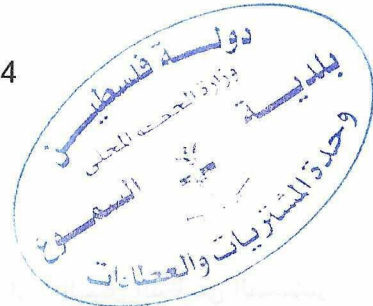 4
دولة فلسطين
وزارة الحكم المحلي
بلدية السموع
وحدة المشتريات والعطاءات